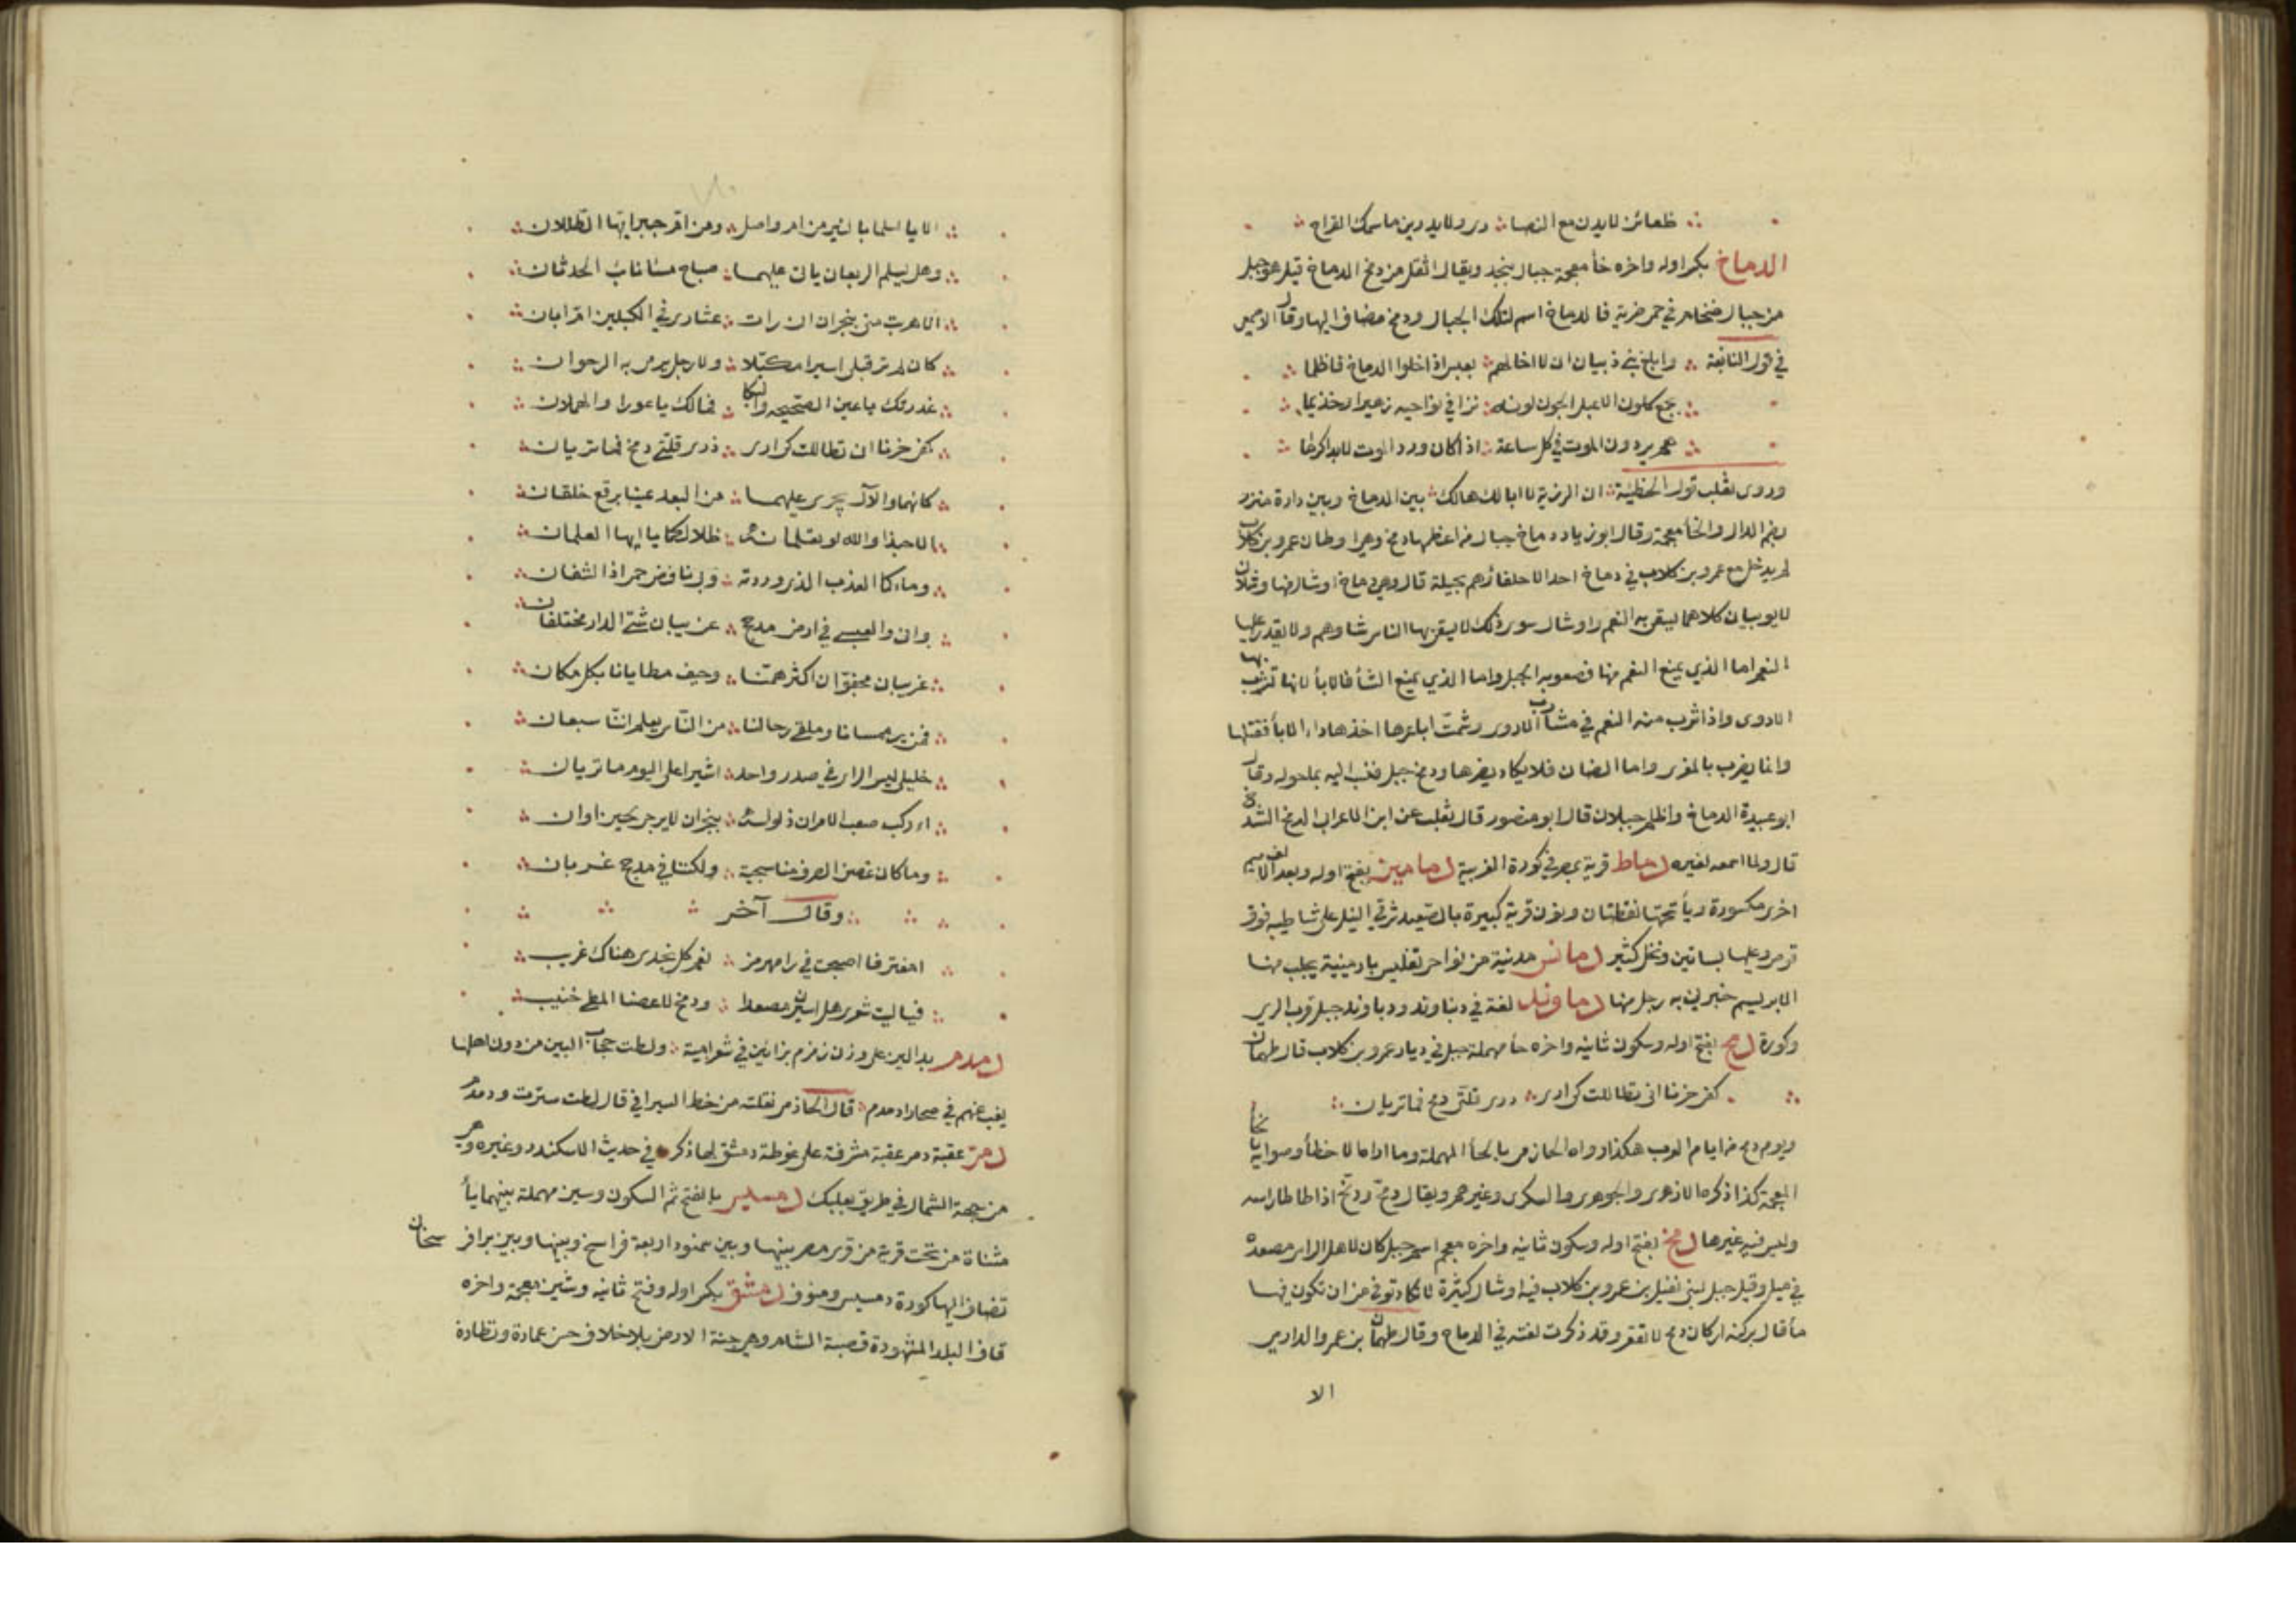 ظعائن لايدن مع النصا در ولا يد دين ماسك القراح
الدماخ بكسر اوله واخره خأ معجمة جبال بنجد ويقال اثقل من دمخ الدماخ قيل هو جبل
من جبال ضخام في حمى ضرية فالدماخ اسم لتلك الجبال ودمخ مضاف اليها وقال الاصمعي
في قول النابغة وابلغ بني ذبيان ان لا اخا لهم بعبس اذا حلوا الدماخ فاظلما
بجمع كلون الاعبل الجون لونه ترا في نواحيه زهيرا وحذيما
هم يردون الموت في كل ساعة اذا كان ورد الموت لابد اكرما
وروى ثعلب قول الحطيئة ان الرزية لا ابالك هالك بين الدماخ وبين دارة منزر
بضم الدال والخأ معجمة وقال ابو زياد دماخ جبال من اعظمها دمخ وهي اوطان عمرو بن كلاب
لم يدخل مع عمرو بن كلاب في دماخ احد الا حلفاؤهم بجيلة قال وهي دماخ اوشالها وشلان
لا يوبيان كلاهما يسقى به النعم واوشال سوى ذلك لا يسقى بها الناس شاوهم ولا يقدر عليها
النعم اما الذي يمنع النعم منها فصعوبه الجبل واما الذي يمنع الشأ فالابأ لانها تشرب بها
الادوى واذا شرب منه النعم في مشارب الادوى وشمت ابعارها اخذها داء الابأ فقتلها
وانما يضرب بالمغزى واما الضان فلا يكاد يضرها ودمخ جبل فنسب اليه بما حوله وقال
ابو عبيدة الدماخ واظلم جبلان قال ابو منصور قال ثعلب عن ابن الاعرابي الدمخ الشدخ
قال ولما اسمعه لغيره دماط قرية بمصر في كورة الغربية دمامين بفتح اوله وبعد الالف ميم
اخرى مكسورة ويأ تحتها نقطتان ونون قرية كبيرة بالصعيد شرقي النيل على شاطيه فوق
قوص وعليها بساتين ونخل كثير دمانس مدينة من نواحي تفليس بارمينية يجلب منها
الابريسم خبرني به رجل منها دماوند لغة في دنباوند ودباوند جبل قرب الري
وكورة دمح بفتح اوله وسكون ثانيه واخره حأ مهملة جبل في ديار عمرو بن كلاب قال طهمان
كفى حزنا اني تطاللت كي ارى ذرى قلتي دمح فما تريان
ويوم دمح من ايام العرب هكذا رواه الحازمي بالحأ المهملة وما اراه الا خطأ وصوابه بالخا
المعجمة كذا ذكره الازهري والجوهري والسكري وغيرهم ويقال دمح ودبح اذا طاطا راسه
وليس فيه غيرها دمخ بفتح اوله وسكون ثانيه واخره معجم اسم جبل كان لاهل الراس مصعده
في ميل وقيل جبل لبني نفيل بن عمرو بن كلاب فيه اوشال كثيرة لا تكاد توتى من ان تكون فيها
مأ قال بركنه اركان دمخ لا تقفر وقد ذكرت لغته في الدماح وقال طهمان بن عمرو الدارمي
الا
الا يا اسلما بالبئر من ام واصل ومن ام جبر ايها الطللان
وهل يسلم الربعان ياتي عليهما صباح مسا نايب الحدثان
الا هربت مني بنجران ان رات عثاري في الكبلين ام ابان
كان لم تر قبلي اسيرا مكبلا ولا رجل يرمى به الرجوان
عذرتك يا عين الصحيحه والبكا فمالك يا عورا والهملان
كفى حزنا ان تطاللت كي ارى ذرى قلتي دمخ فما تريان
كانهما والآل يجري عليهما من البعد عينا برقع خلقان
الا حبذا والله لو تعلمانه ظلالكما يا ايها العلمان
وماءكما العذب الذي وردته وبي نافض حمى اذا لشفان
واني والعبسي في ارض مذحج غريبان شتى الدار مختلفان
غريبان مجفوان اكثر همنا وجيف مطايانا بكل مكان
فمن ير ممسانا وملقى رحالنا من الناس يعلم اننا سبعان
خليلي ليس الراي في صدر واحد اشيرا علي اليوم ما تريان
اءركب صعب الامر ان ذلوله بنجران لا يرجى لحين اوان
وما كان غض الطرف منا سجية ولكننا في مذحج غربان
وقال آخر
امغتربا اصبحت في رامهرمز نعم كل نجدي هناك غريب
فيا ليت شعري هل اسيرن مصعدا ودمخ لاعضا المطي خنيب
دمدم بدالين على وزن زمزم بزائين في شعر امية ولطت حجاب البين من دون اهلها
يغب عنهم في صحار دمدم قال الحازمي نقلته من خط السيرافي قال لطت سترت ودمدم
دمر عقبة دمر عقبة مشرفة على غوطة دمشق لها ذكر في حديث الاسكندر وغيره وهي
من جهة الشمال في طريق بعلبك دمسيس بالفتح ثم السكون وسين مهملة بينهما يأ
مثناة من تحت قرية من قرى مصر بينها وبين سمنود اربعة فراسخ وبينها وبين برا فرسخان
تضاف اليها كورة دمسيس ومنوف دمشق بكسر اوله وفتح ثانيه وشين معجمة واخره
قاف البلد المشهورة قصبة الشام وهي جنة الارض بلا خلاف حسن عمارة ونظارة